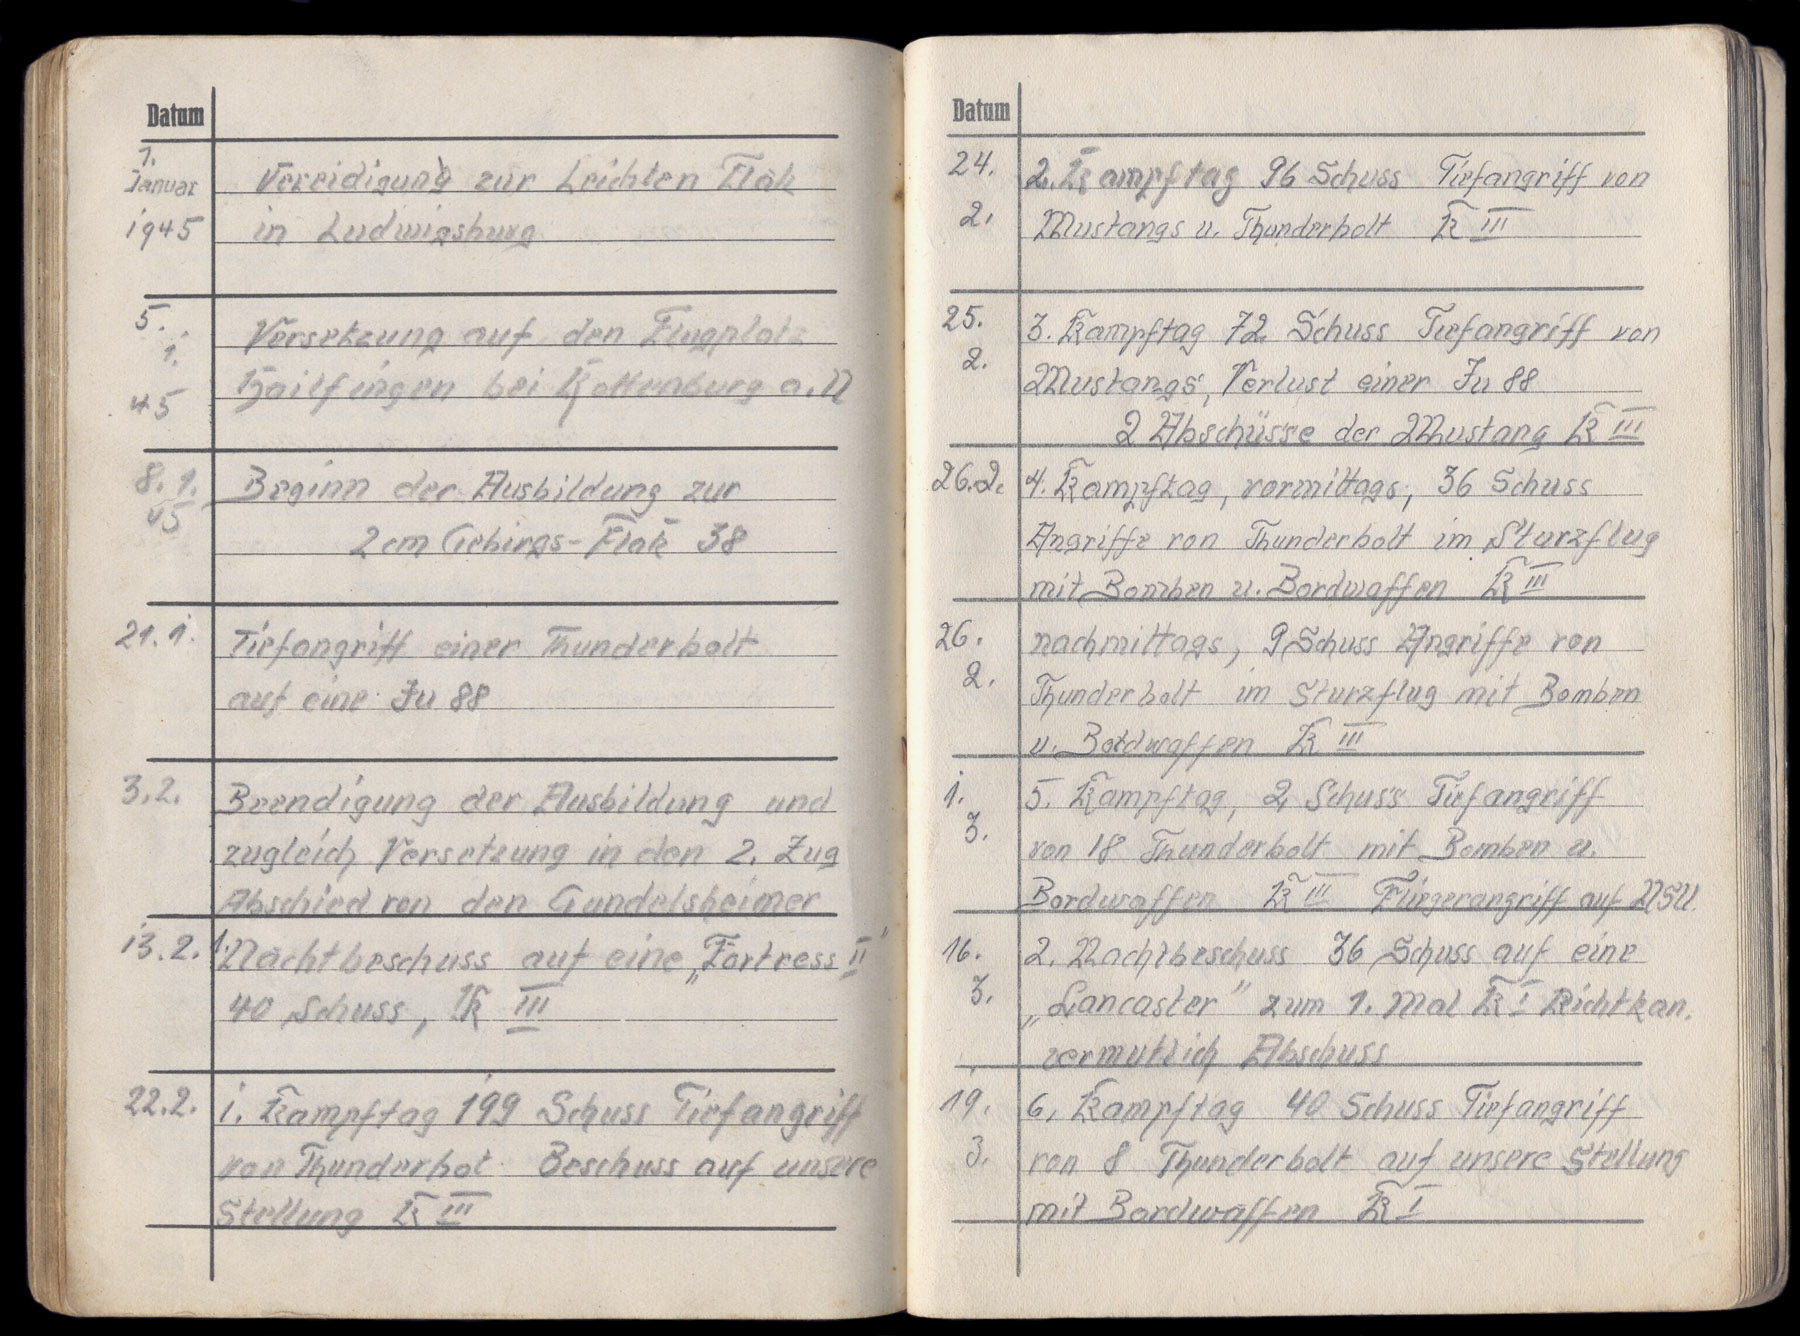 Datum
1.
Januar
1945
Vereidigung zur Leichten Flak
in Ludwigsburg
5.
1.
45
Versetzung auf den Flugplatz
Hailfingen bei Rottenburg a. N
8. 1.
45
Beginn der Ausbildung zur
2 cm Gebirgs-Flak 38
21. 1.
Tiefangriff einer Thunderbolt
auf eine Ju 88
3. 2.
Beendigung der Ausbildung und
zugleich Versetzung in den 2. Zug
Abschied von den Gundelsheimer
13. 2.
1. Nachtbeschuss auf eine „Fortress II"
40 Schuss, K III
22. 2.
1. Kampftag 199 Schuss Tiefangriff
von Thunderbot Beschuss auf unsere
Stellung K III
Datum
24.
2.
2. Kampftag 96 Schuss Tiefangriff von
Mustangs u. Thunderbolt K III
25.
2.
3. Kampftag 72 Schuss Tiefangriff von
Mustangs, Verlust einer Ju 88
2 Abschüsse der Mustang K III
26. 2.
4. Kampftag, vormittags, 36 Schuss
Angriffe von Thunderbolt im Sturzflug
mit Bomben u. Bordwaffen K III
26.
2.
nachmittags, 9 Schuss Angriffe von
Thunderbolt im Sturzflug mit Bomben
u. Bordwaffen K III
1.
3.
5. Kampftag, 2 Schuss Tiefangriff
von 18 Thunderbolt mit Bomben u.
Bordwaffen K III Fliegerangriff auf NSU
16.
3.
2. Nachtbeschuss 36 Schuss auf eine
„Lancaster" zum 1. Mal K I Richtkan.
vermutlich Abschuss
19.
3.
6. Kampftag 40 Schuss Tiefangriff
von 8 Thunderbolt auf unsere Stellung
mit Bordwaffen K I